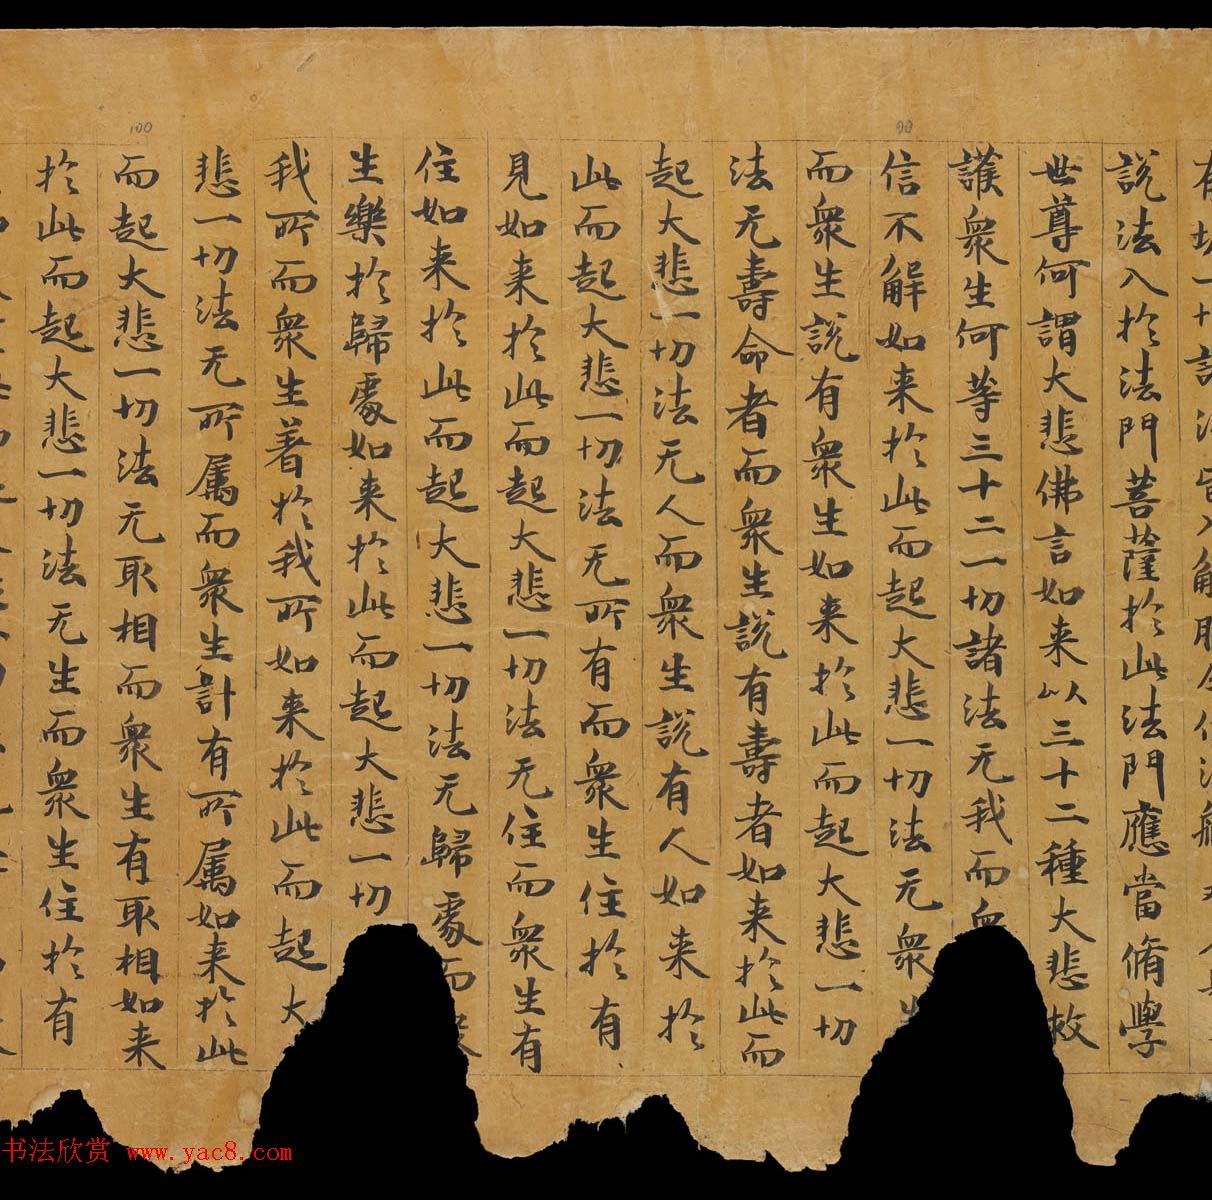 說法入於法門菩薩於此法門應當脩學
世尊何謂大悲佛言如来以三十二種大悲救
護衆生何等三十二一切諸法无我而衆
信不解如来於此而起大悲一切法无衆生
而衆生說有衆生如来於此而起大悲一切
法无壽命者而衆生說有壽者如来於此而
起大悲一切法无人而衆生說有人如来於
此而起大悲一切法无所有而衆生住於有
見如来於此而起大悲一切法无住而衆生有
住如来於此而起大悲一切法无歸處而衆
生樂於歸處如来於此而起大悲一切
我所而衆生著於我所如来於此而起大
悲一切法无所属而衆生計有所属如来於此
而起大悲一切法无取相而衆生有取相如来
於此而起大悲一切法无生而衆生住於有
100
90
书法欣赏 www.yac8.com